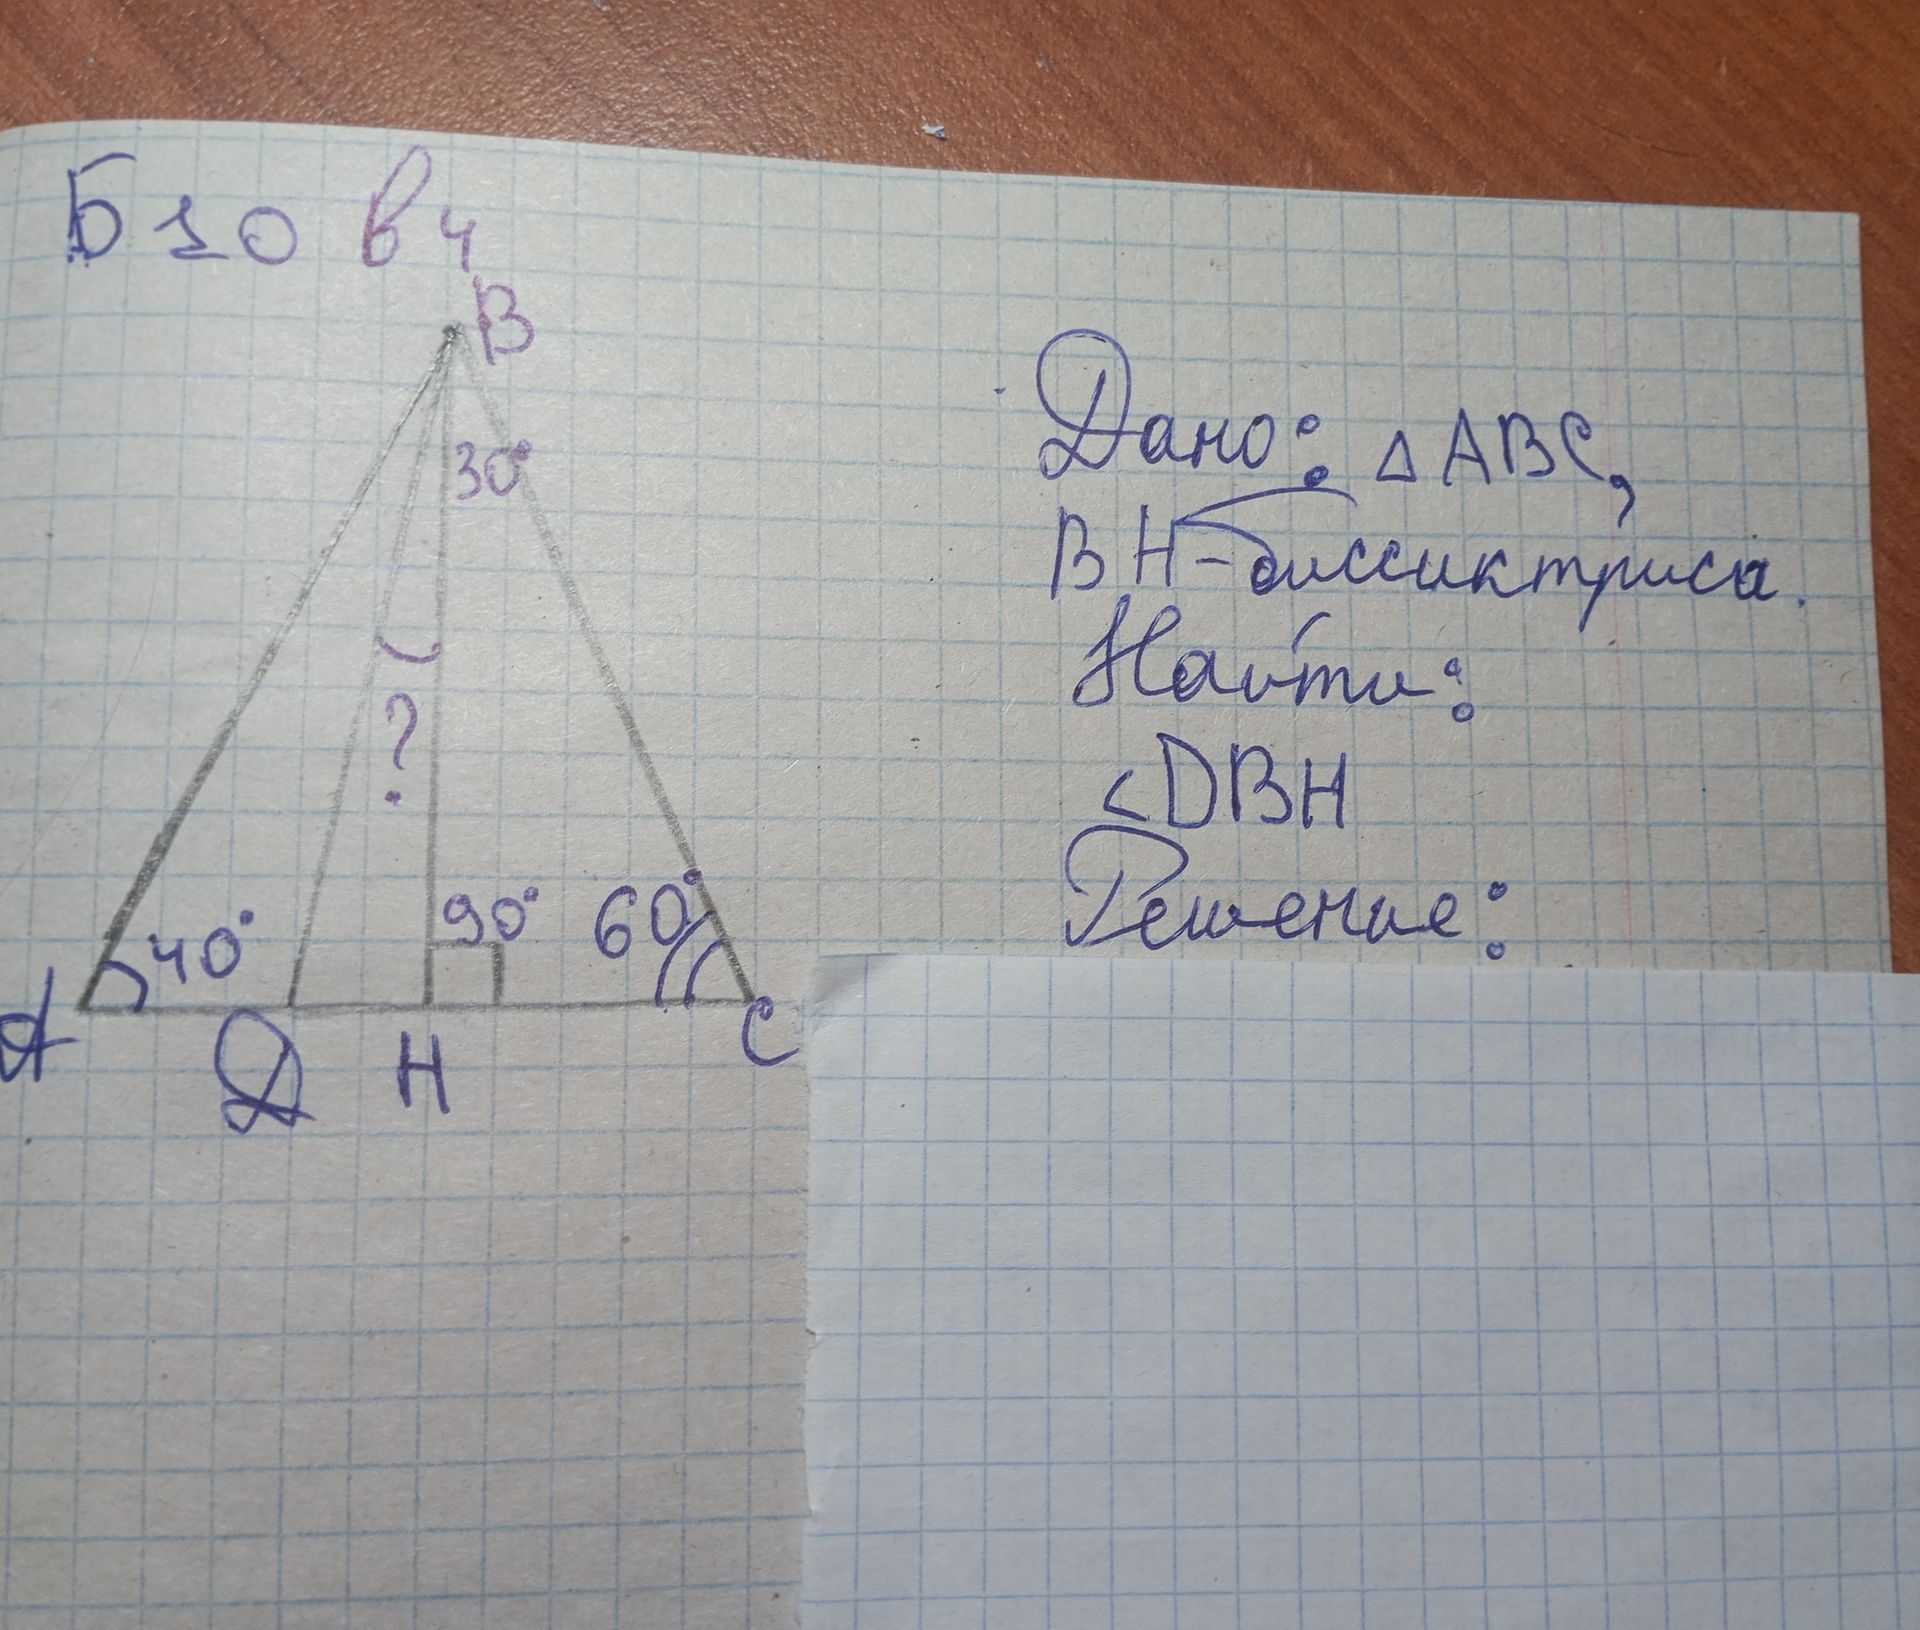 Б10 в4
B
30°
?
40°
90°
60°
A
D
H
C
Дано: △ABC,
BH-биссиктриса.
Найти:
<DBH
Решение: